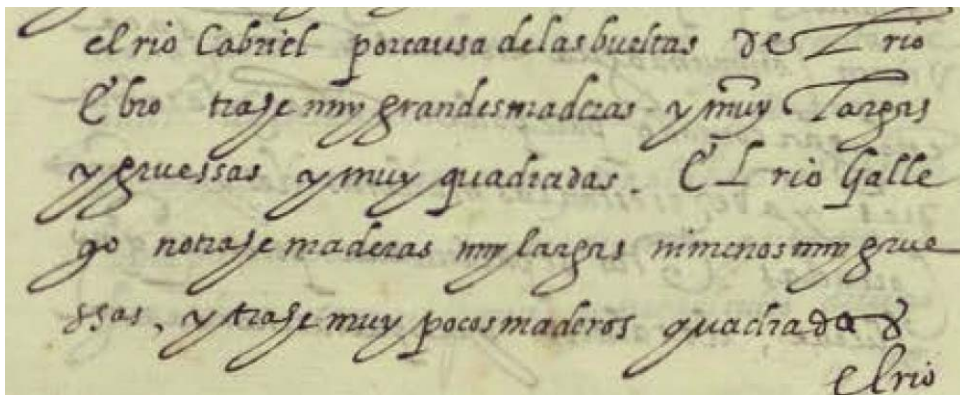 el rio Cabriel por causa de las bueltas del rio
Ebro traje muy grandes maderas y muy largas
y gruessas y muy quadradas. El rio Galle
go no traje maderas muy largas ni menos muy grue
ssas, y traje muy pocos maderos quadrados
el rio